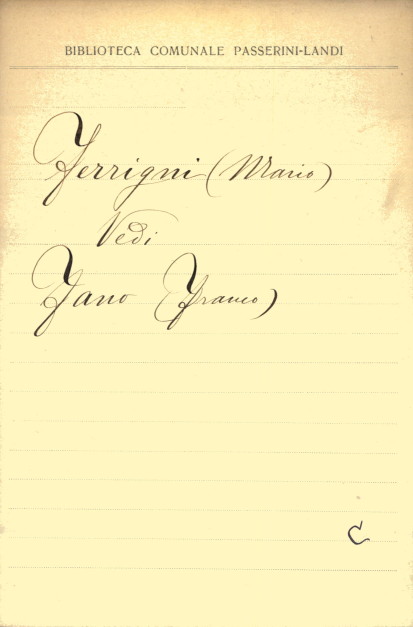 BIBLIOTECA COMUNALE PASSERINI-LANDI
Ferrigni (Mario)
Vedi
Fano (Franco)
C